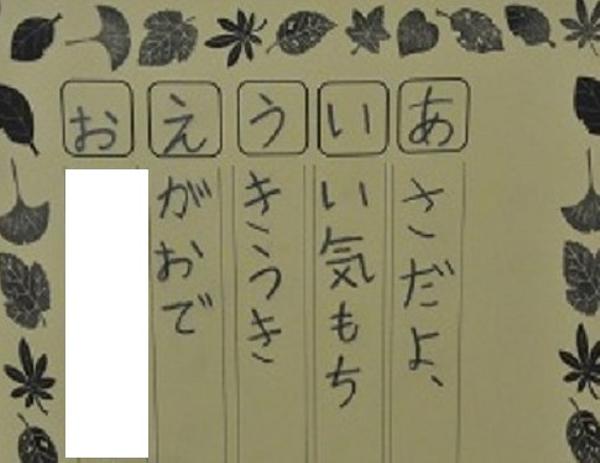 あさだよ、
いい気もち
うきうき
えがおで
お